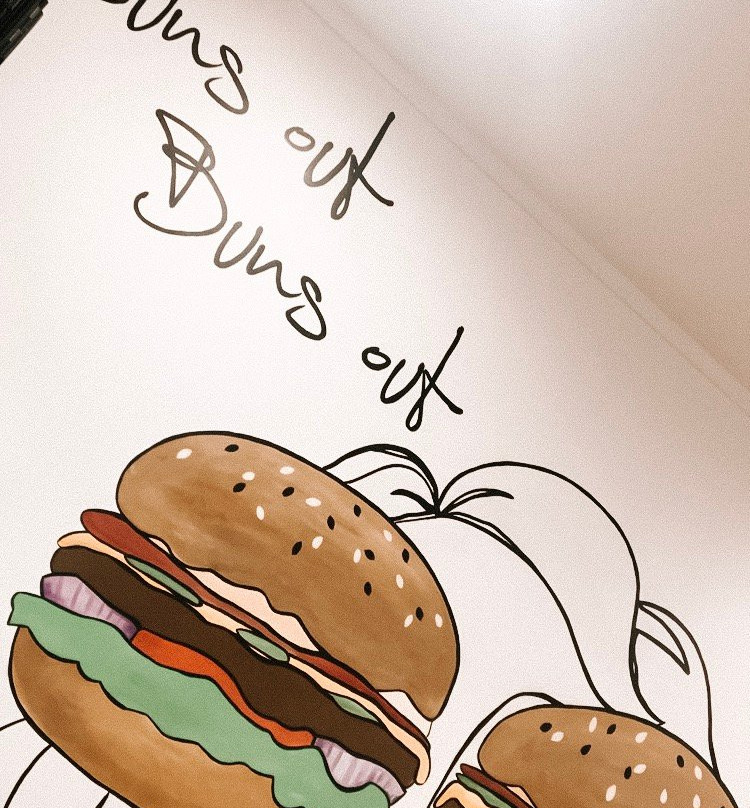 Buns out
Buns out